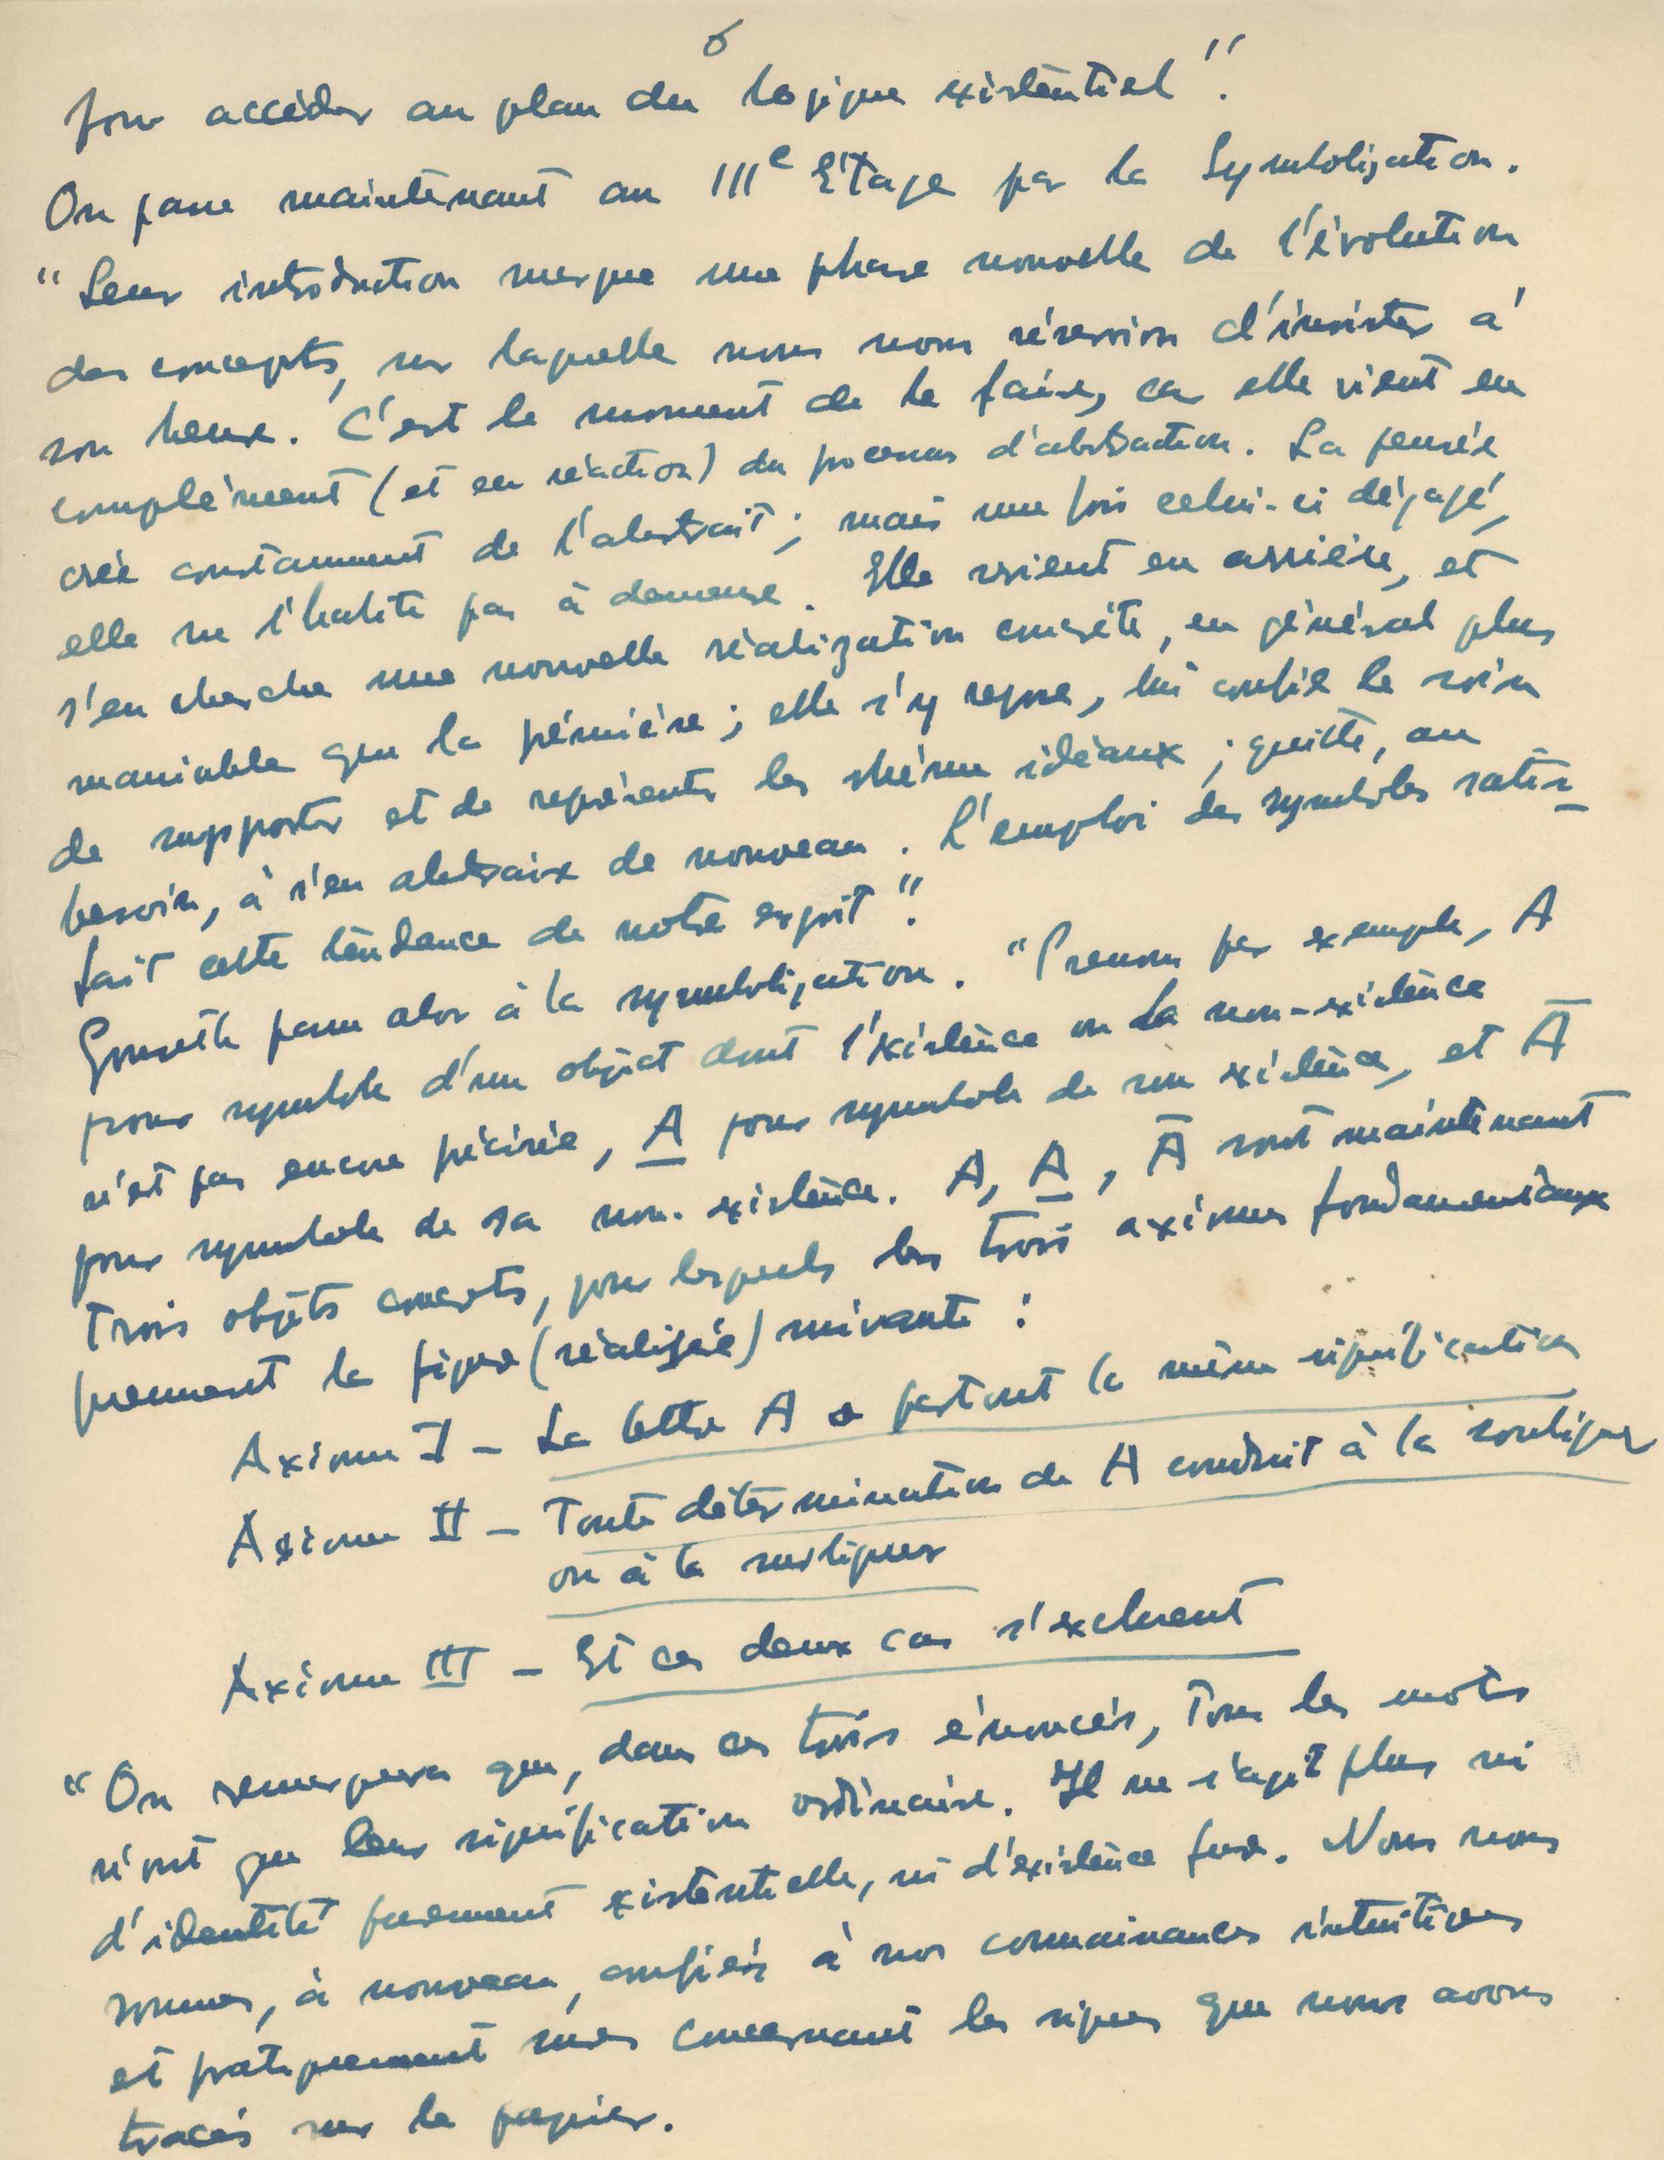 6
pour accéder au plan du logique existentiel".
On passe maintenant au IIIe Étage par la Symbolisation.
"Leur introduction marque une phase nouvelle de l'évolution
des concepts, sur laquelle nous nous réservions d'insister à
son heure. C'est le moment de le faire, car elle vient en
complément (et en réaction) du processus d'abstraction. La pensée
crée constamment de l'abstrait; mais une fois celui-ci dégagé,
elle ne l'habite pas à demeure. Elle revient en arrière, et
s'en cherche une nouvelle réalization concrète, en général plus
maniable que la première; elle s'y repose, lui confie le soin
de supporter et de représenter les schémas idéaux; quitte, au
besoin, à s'en abstraire de nouveau. L'emploi des symboles satis-
fait cette tendance de notre esprit".
Gonseth passe alors à la symbolisation. "Prenons par exemple, A
pour symbole d'un object dont l'existence ou la non-existence
n'est pas encore précisée, A̲ pour symbole de son existence, et Ā
pour symbole de sa non-existence. A, A̲, Ā sont maintenant
trois objets concrets, pour lesquels les trois axiomes fondamentaux
prennent la figure (réalisée) suivante:
Axiome I - La lettre A a partout la même signification
Axiome II - Toute détermination de A conduit à la souligner
ou à la surligner
Axiome III - Et ces deux cas s'excluent
"On remarquera que, dans ces trois énoncés, tous les mots
n'ont que leur signification ordinaire. Il ne s'agit plus ni
d'identité purement existentielle, ni d'existence pure. Nous nous
sommes, à nouveau, confiés à nos connaissances intuitives
et pratiquement sûres concernant les signes que nous avons
tracés sur le papier.